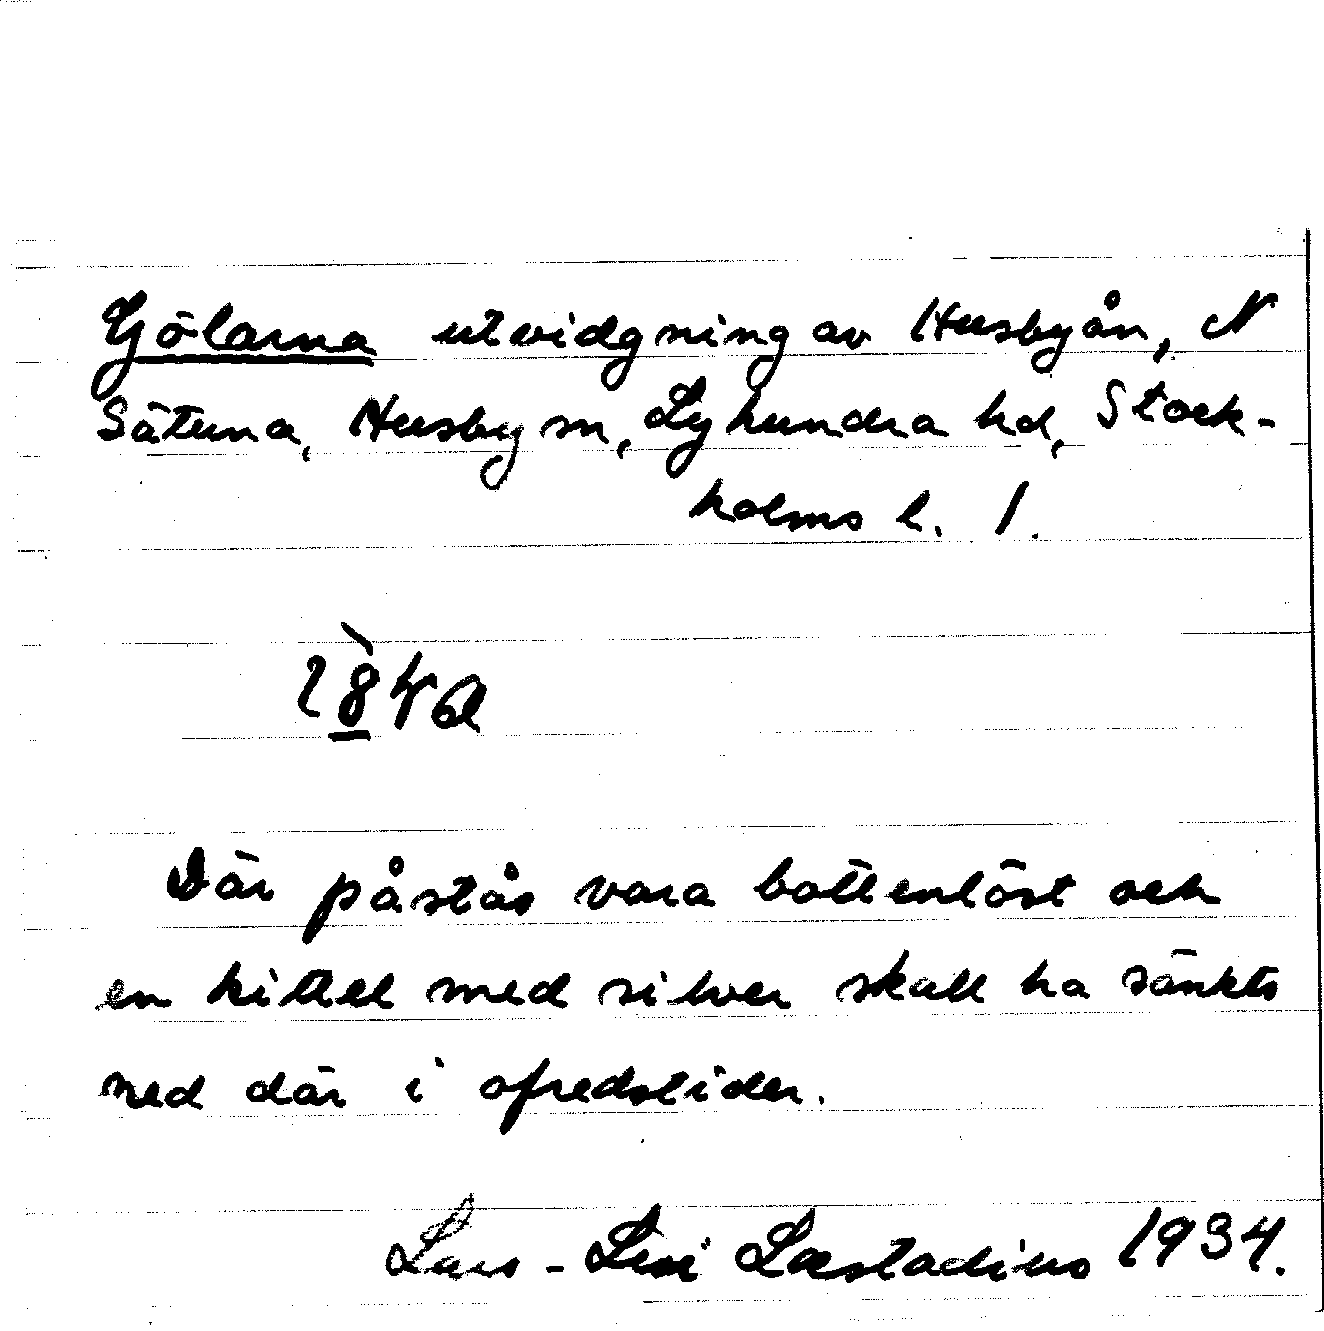 Gölarna utvidgning av Husbyån, N
Sätuna, Husby sn, Lyhundra hd, Stock-
holms l. 1.
Där påstås vara bottenlöst och
en kittel med silver skall ha sänkts
ned där i ofredstider.
Lars-Levi Læstadius 1934.